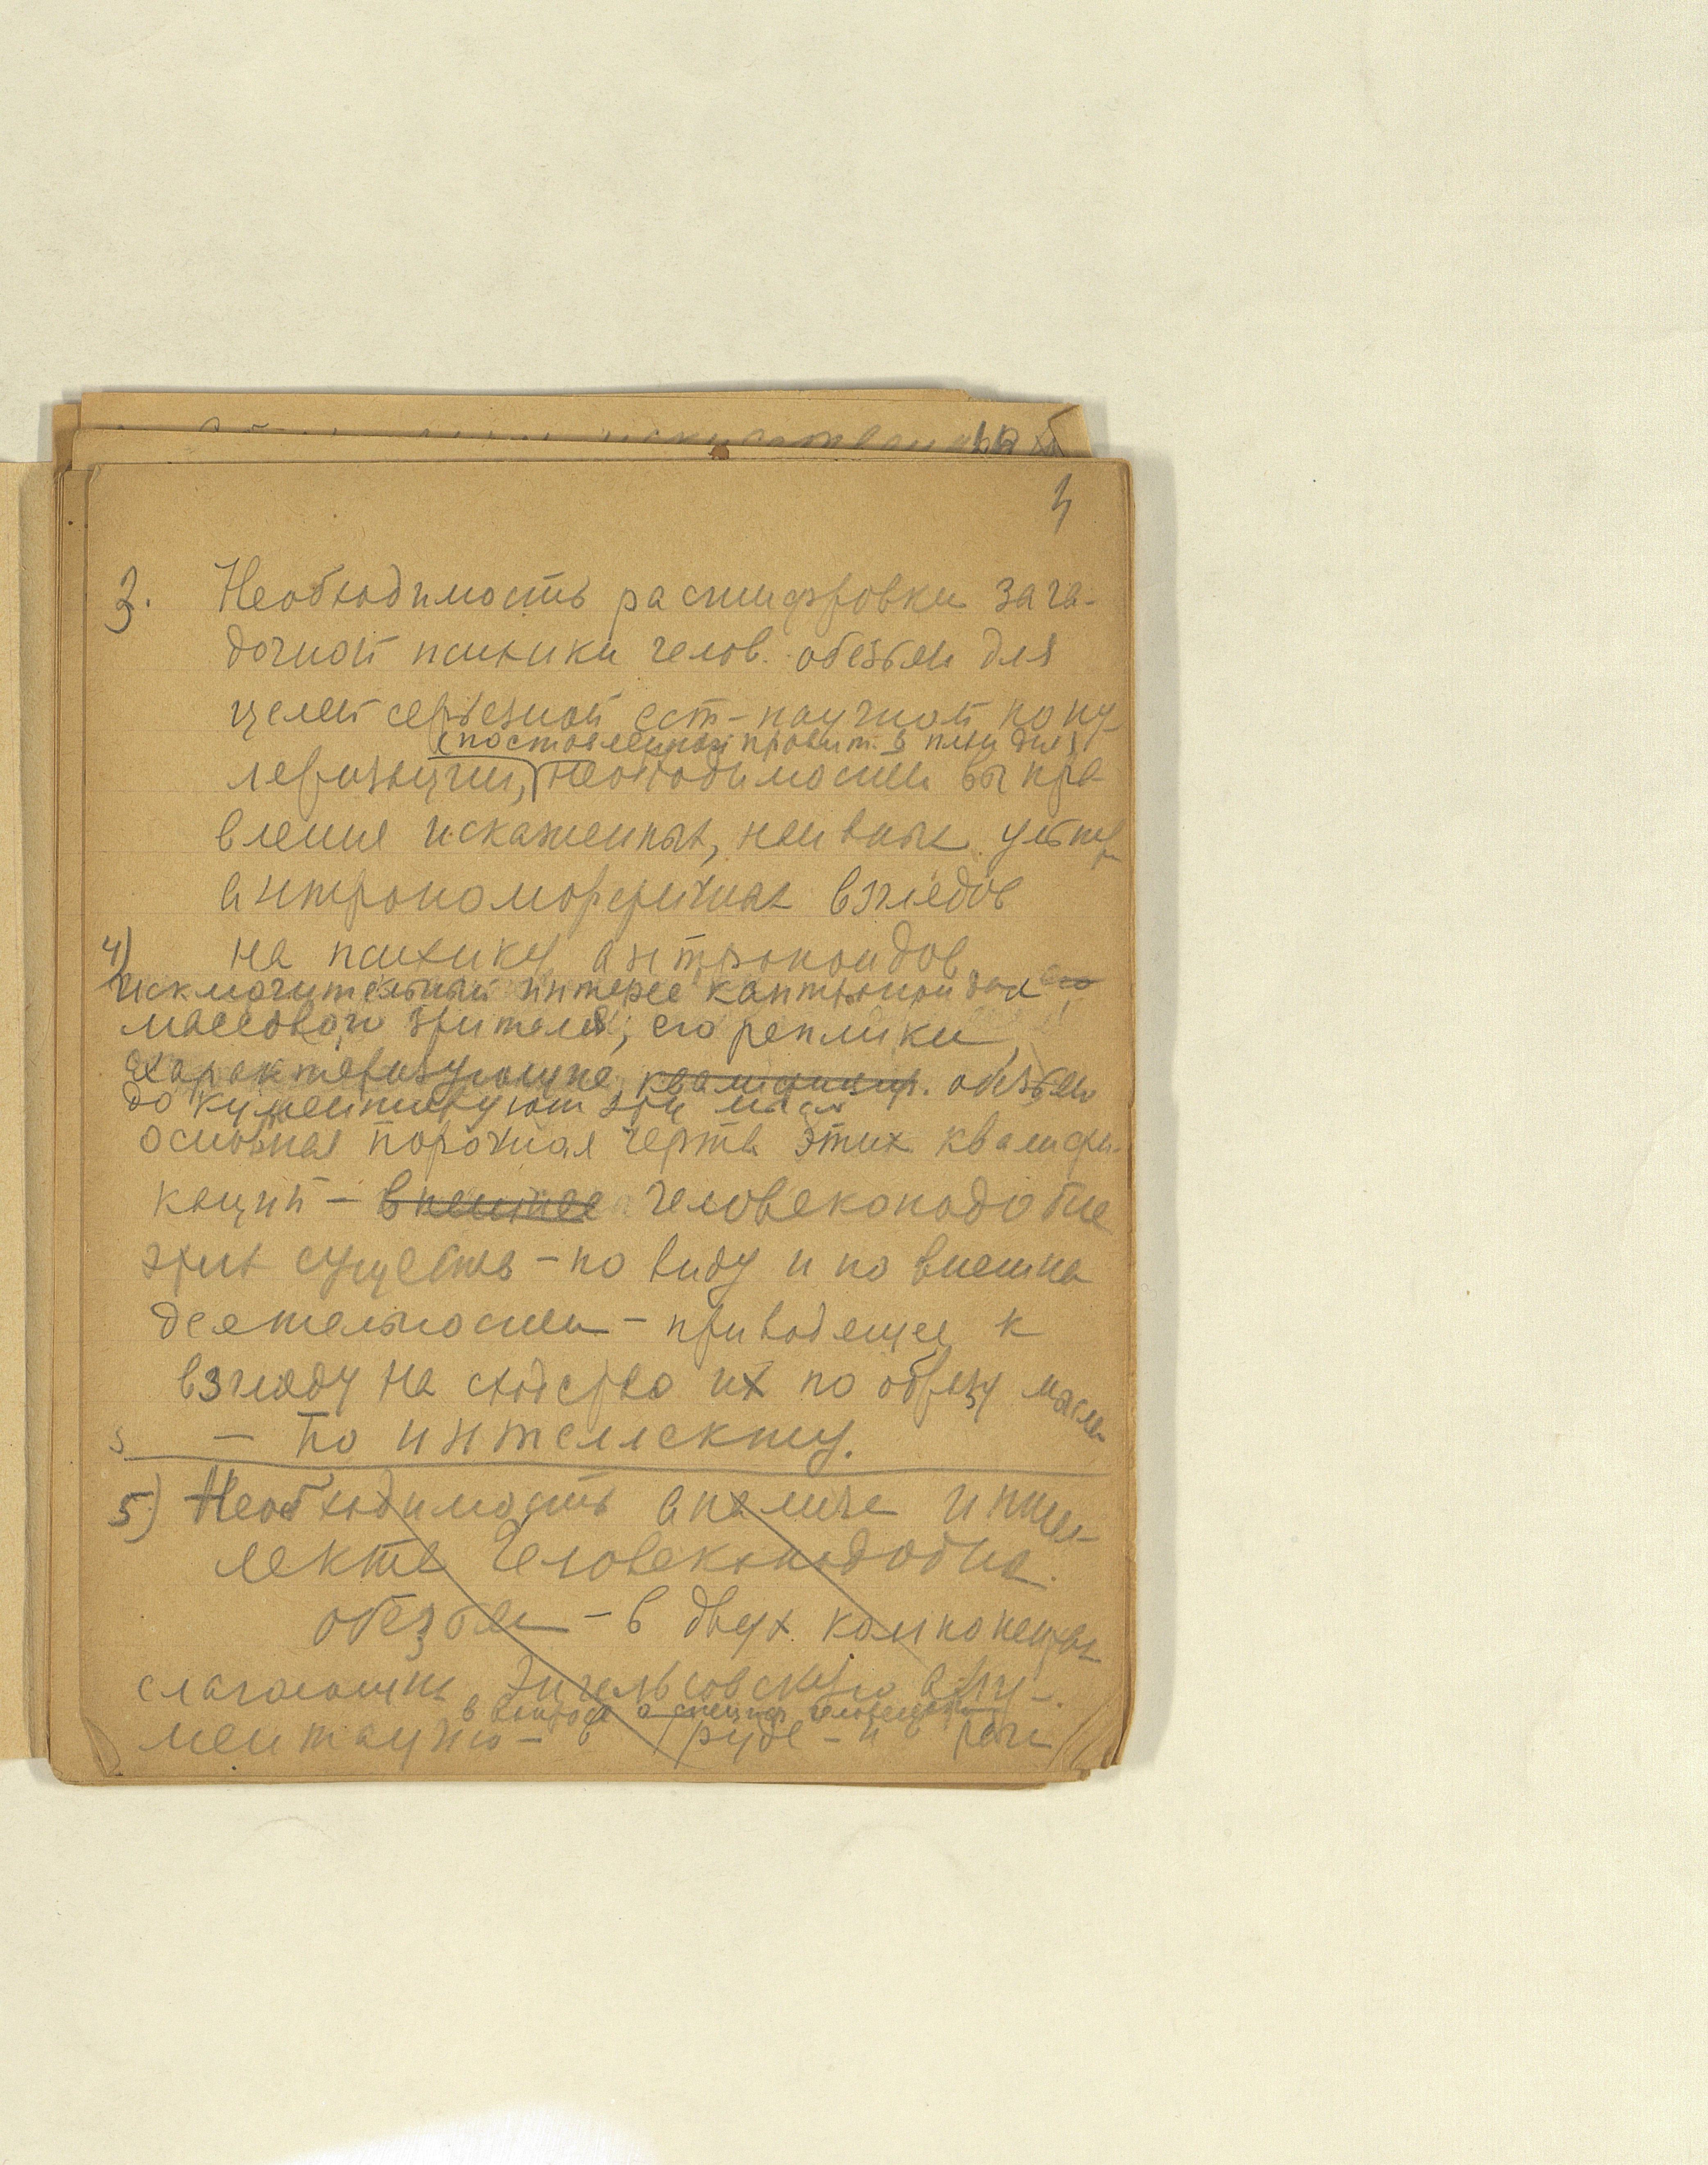 4
3. Необходимость расшифровки зага-
дочной психики челов. обезьян для
целей серьезной ест-научной попу
(поставленной правит. в план дня)
леризации, необходимости выпра-
вления искаженных, наивных
антропоморфичных взглядов
на психику антропоидов
4) Исключительный интерес к антропоидам
массового зрителя, его реплики,
характеризующие квалификац. обезьян
документируют эти
основная порочная черта этих квалифи-
каций – внешнее человекоподобие
этих существ – по виду и по внешна
деятельности – приводящее к
взгляду на сходство их по образу мысли
– по интеллекту.
5) Необходимость анализа интел-
лекта человекоподобна.
обезьян – в двух компонентах
слагающих энгельсовскую аргу-
в вопросе о специф.
ментацию – в труде – и в речи